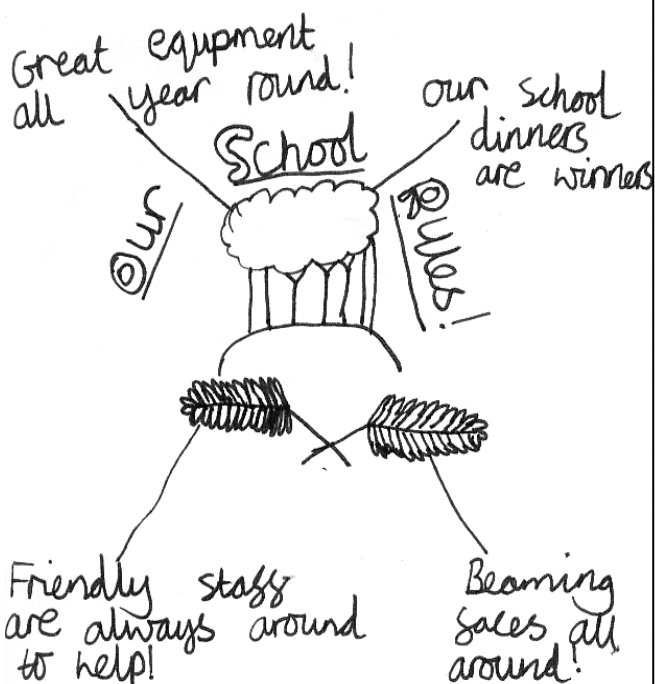 Great equpment
all year round!
our school
dinners
are winners
Our School Rules!
Friendly staff
are always around
to help!
Beaming
faces all
around!